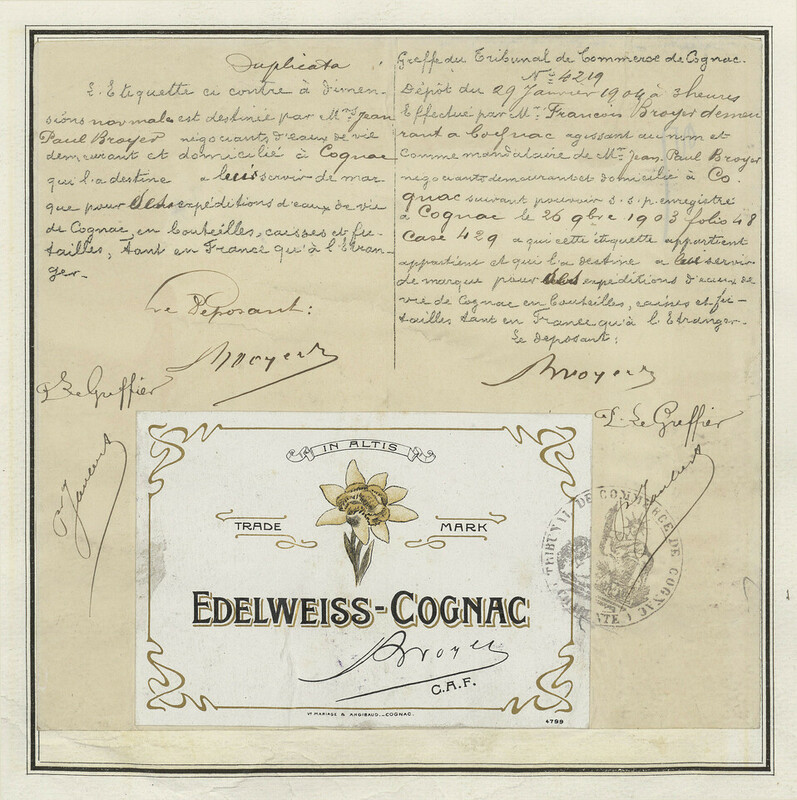 Duplicata
L'Etiquette ci contre à dimen-
sions normales est destinée par Mr Jean
Paul Broyer négociant d'eaux de vie
demeurant et domicilié à Cognac
qui l'a destine a lui servir de mar-
que pour des expéditions d'eaux de vie
de Cognac, en bouteilles, caisses et fu-
tailles, tant en France qu'à l'Etran-
ger-
Le Déposant:
Broyer
P. Le Greffier
Greffe du Tribunal de Commerce de Cognac.
No 4219
Dépôt du 29 Janvier 1904 à 3 heures
Effectué par Mr. François Broyer demeu
rant a Cognac agissant au nom et
comme mandataire de Mr. Jean Paul Broyer
negociant demeurant et domicilié à Co-
gnac suivant pouvoir s.s.p. enregistré
à Cognac le 26 9bre 1903 folio 48
Case 429 a qui cette étiquette appartient
appartient et qui l'a destine a lui servir
de marque pour des expéditions d'eaux de
vie de Cognac en bouteilles, caisses et fu-
tailles tant en France qu'à l'Etranger-
Le deposant:
Broyer
P. Le Greffier
IN ALTIS
TRADE MARK
EDELWEISS-COGNAC
Broyer
C.A.F.
Vve MARIAGE & ANGIBAUD._COGNAC.
4799
TRIBUNAL DE COMMERCE DE COGNAC
(CHARENTE)